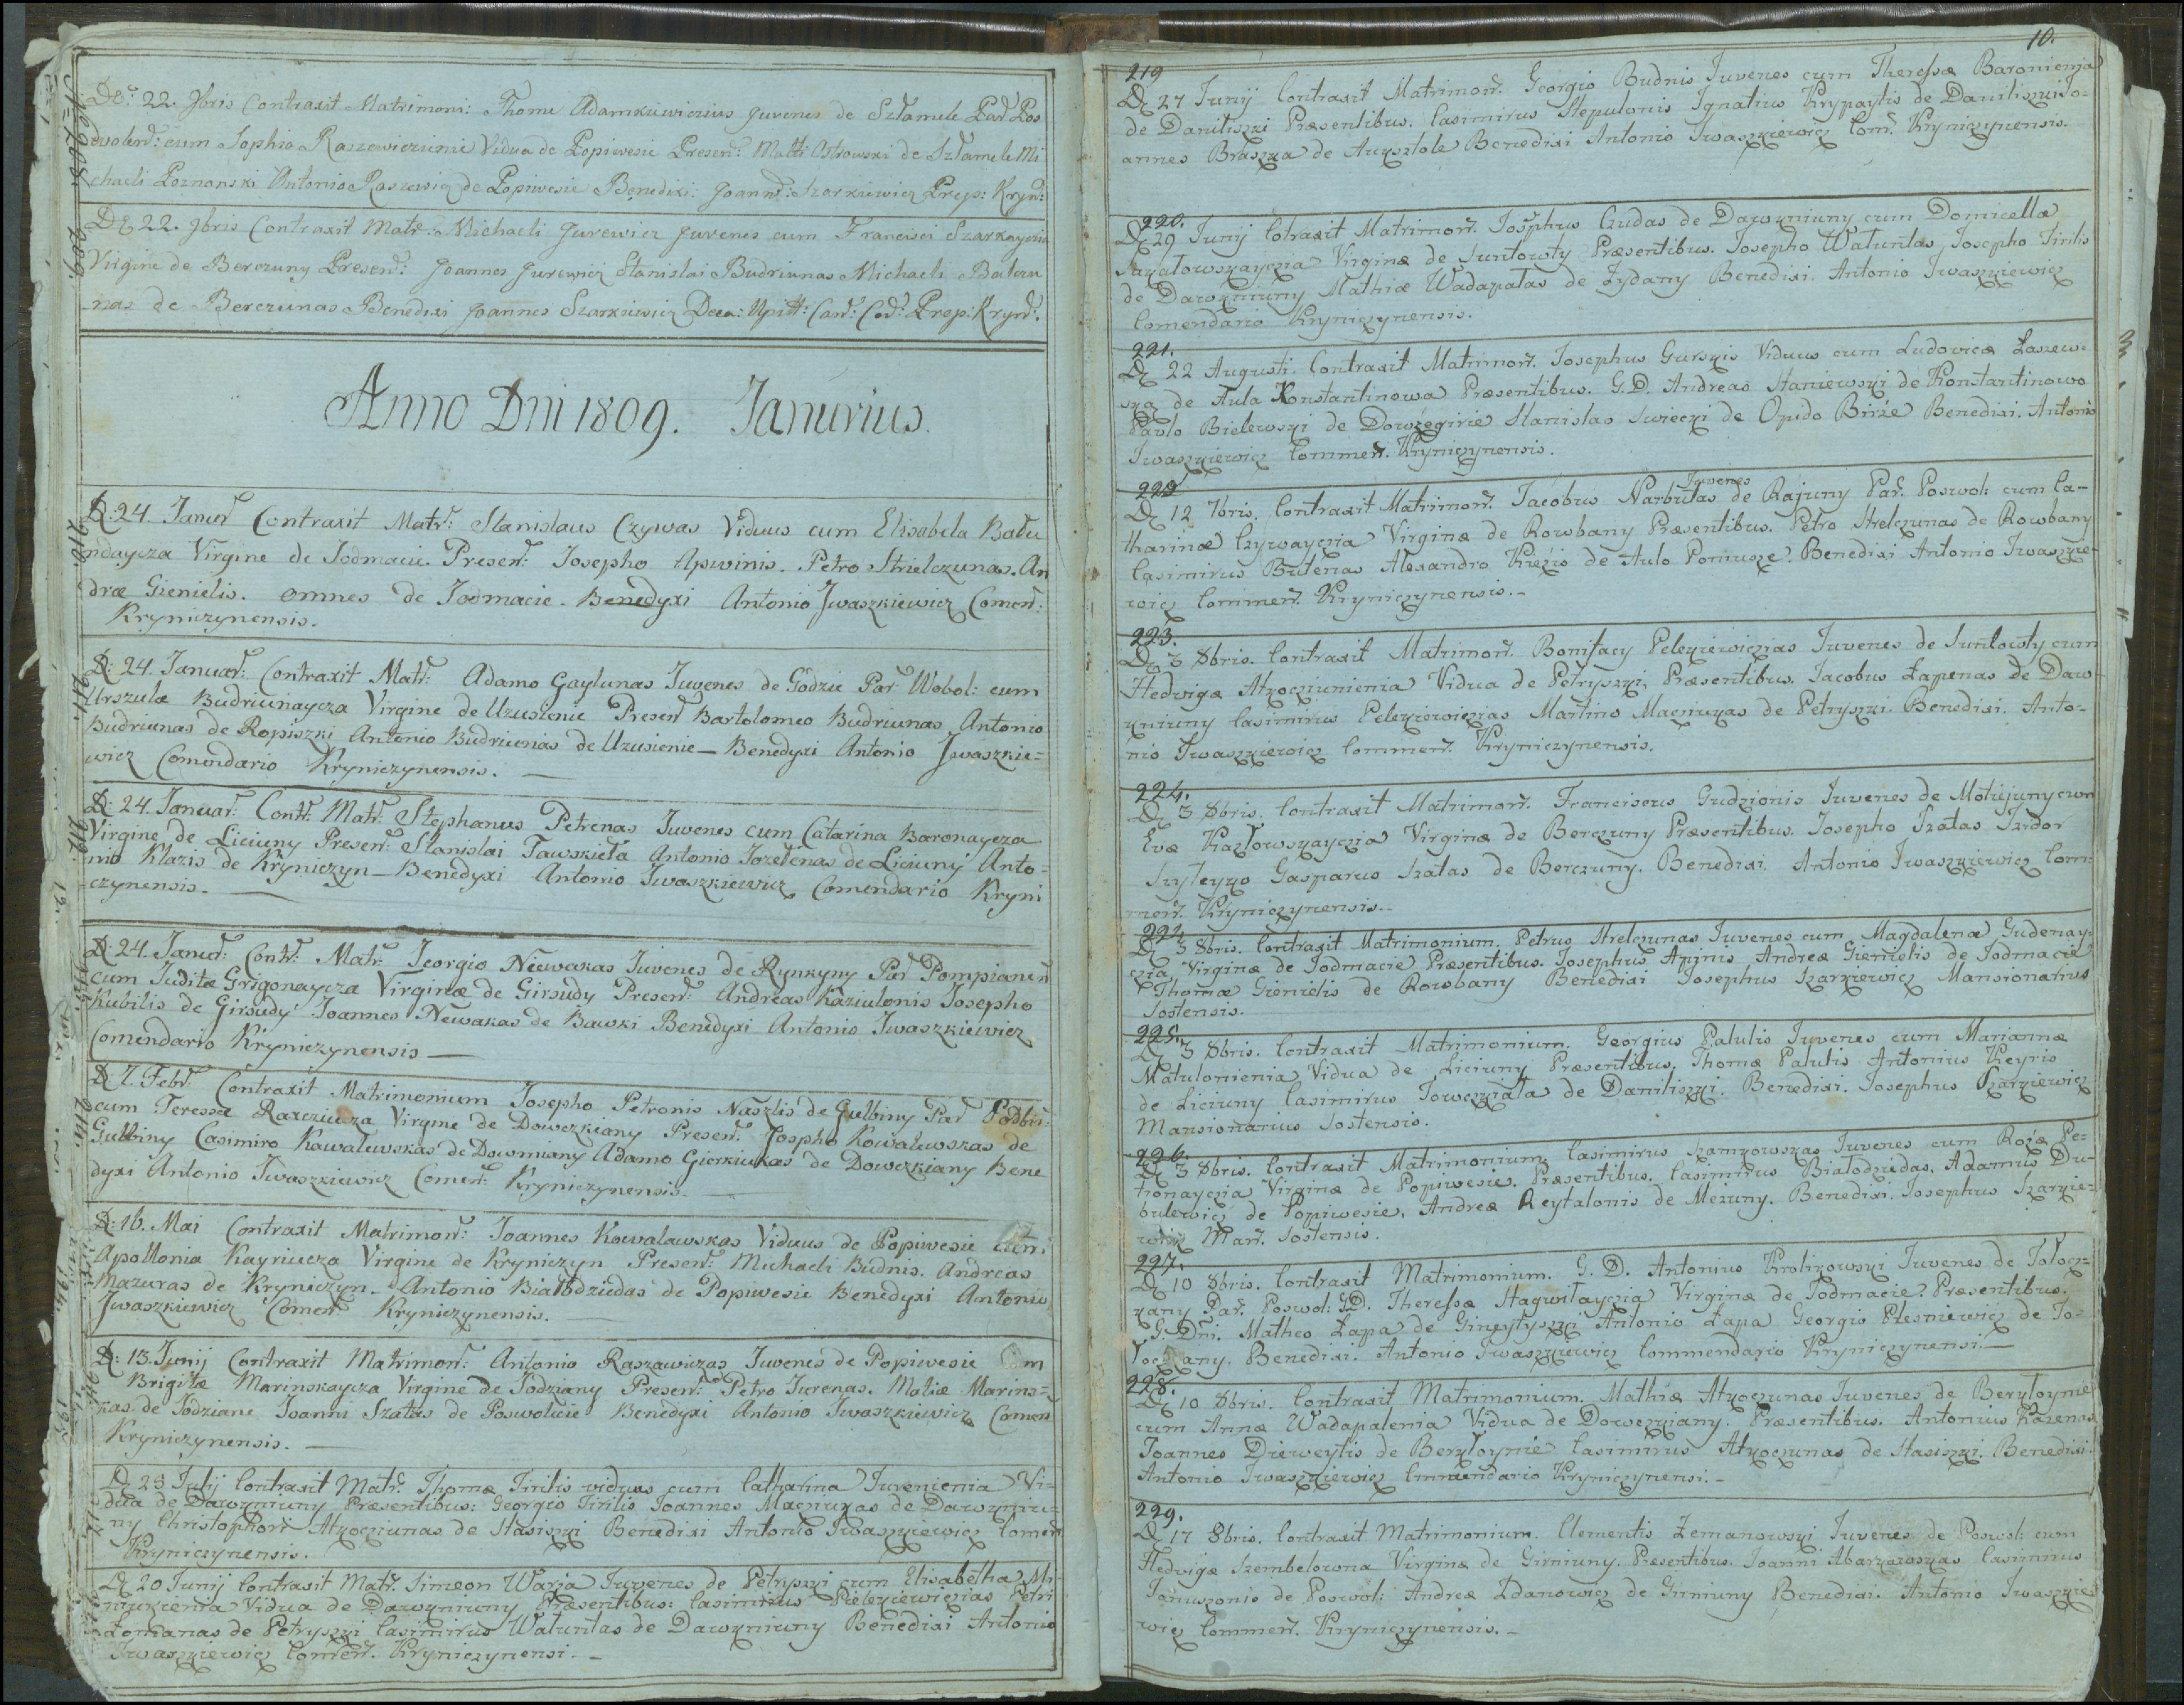 De: 22. 9bris Contraxit Matrimoni: Thoma Adamkiewiczius Juvenes de Sztamele Par Pos
wolen: cum Sophia Raszewiczunie Vidua de Popiwesie Presen: Matti Ostrowski de Sztamele Mi
chaeli Poznanski Antonio Raszewicz de Popiwesie Benedixi: Joann: Szarkiewicz Prep: Kryn:
D 22. 9bris Contraxit Matr: Michaeli Jurewicz Juvenes cum Francisci Szarkaycia
Virgine de Berczuny Presen: Joannes Jurewicz Stanislai Budriunas Michaeli
nas de Berczunas Benedixi Joannes Szarkiewicz Prep: Kryn:
Anno Dni 1809. Janurius.
D: 24. Januar Contraxit Matr: Stanislaus Czywas Viduus cum Elisabela Balu
ndaycza Virgine de Jodmacie. Presen: Josepho Apwinis. Petro Strielczunas. An
dræ Gienielis. omnes de Jodmacie. Benedyxi Antonio Jwaszkiewicz Comen:
Kryniczynensis.
D: 24. Januar: Contraxit Matr: Adamo Gaylunas Juvenes de Godzie Par Wobol: cum
Urszulæ Budriunaycza Virgine de Uzusienie Presen Bartolomeo Budriunas Antonio
Budriunas de Ropiszki Antonio Budriunas de Uzusienie - Benedyxi Antonio Jwaszkie=
wicz Comendario Kryniczynensis. —
D: 24. Januar: Contr: Matr: Stephanus Petrenas Juvenes cum Catarina Baronaycza
Virgine de Liciuny Presen: Stanislai Tawskieta Antonio Jozefenas de Liciuny Anto=
nio Klazis de Kryniczyn - Benedyxi Antonio Jwaszkiewicz Comendario Kryni
czynensis. —
D: 24. Januar: Contr: Matr: Jeorgio Niewakas Juvenes de Rynkyny Par Pompianen
cum Juditæ Grigonaycza Virginæ de Girsudy Presen: Andreas Kaziulonis Josepho
Kubilis de Girsudy Joannes Newakas de Bawki Benedyxi Antonio Jwaszkiewicz
Comendario Kryniczynensis —
D 7. Febr Contraxit Matrimonium Josepho Petronis Naszlis de Gulbiny Par Podbir:
cum Teressæ Raxeziucza Virgine de Dowczkiany Presen: Jospho Kowalewskas de
Gulbiny Casimiro Kawalewskas de Dowmiany Adamo Gierkiukas de Dowczkiany Bene
dyxi Antonio Jwaszkiewicz Comen: Kryniczynensis. —
D: 16. Mai Contraxit Matrimon: Joannes Kowalawskas Viduus de Popiwesie cum
Apollonia Kayriucza Virgine de Kryniczyn Presen: Michaeli Budnis. Andreas
Mazuras de Kryniczyn. Antonio Białodziedas de Popiwesie Benedyxi Antonio
Jwaszkiewicz Comen: Kryniczynensis.
D: 13. Junij Contraxit Matrimon: Antonio Raszawiczas Juvenes de Popiwesie Cum
Brigitæ Marinskaycza Virgine de Jodziany Presen: Petro Jurenas. Matiæ Marins=
kas de Jodziane Joanni Szatas de Poswolcie Benedyxi Antonio Jwaszkiewicz Comen
Kryniczynensis. —
D 23 Julij Contraxit Matr: Thomæ Tirilis viduus cum Catharina Jurenienia Vi=
dua de Dawkniuny Præsentibus: Georgio Tirilis Joannes Macniukas de Dawkniu=
ny Christophori Atkocziunas de Stasiszki Benedixi Antonio Jwaszkiewicz Comen
Kryniczynensis.
D 20 Junij Contraxit Matr: Simeon Warja Juvenes de Petryszki cum Elisabetha Mi
niukienia Vidua de Dawkniuny Præsentibus: Casimirus Pielekiewiczias Petri
Łomanas de Petryszki Casimirus Watuntas de Dawkniuny Benedixi Antonio
Jwaszkiewicz Comen. Kryniczynensi. —
10.
219
D 27 Junij Contraxit Matrimon. Georgio Budnis Juvenes cum Theressæ Baronienia
de Daniliszki Præsentibus. Casimirus Stepulonis Ignatius Krypaytis de Daniliszki Jo-
annes Braszka de Auksztole Benedixi Antonio Jwaszkiewicz Com. Kryniczynensis.
220.
D 29 Junij Cotraxit Matrimon. Josphus Czudas de Dawkniuny cum Domicellæ
Szakatowskayczia Virginæ de Suntowty Præsentibus. Josepho Watuntas Josepho Tirilis
de Dawkniuny Mathiæ Wadapalas de Zydany Benedixi. Antonio Jwaszkiewicz
Comendario Kryniczynensis.
221.
D 22 Augusti. Contraxit Matrimon. Josephus Gurskis Viduus cum Ludovica Łaszews-
ska de Aula Konstantinowa Præsentibus. G.D. Andreas Staniewski de Konstantinowo
Pavlo Bielewski de Dowzegirie Stanislao Swiecki de Opido Birże Benedixi. Antonio
Jwaszkiewicz Commen. Kryniczynensis.
222
Juvenes
D 12 7bris. Contraxit Matrimon. Jacobus Narbutas de Rajuny Par. Poswol: cum Ca-
tharinæ Czywayczia Virginæ de Rowbany Præsentibus. Petro Strelczunas de Rowbany
Casimirus Butenas Alexandro Krezio de Aulo Pomusze. Benedixi Antonio Jwaszkie-
wicz Commen. Kryniczynensis. —
223.
D 3 8bris. Contraxit Matrimon. Bonifacy Pelekiewiczias Juvenes de Suntowty cum
Hedvigæ Atkocziunienia Vidua de Petryszki, Præsentibus. Jacobus Łapenas de Daw-
kniuny Casimirus Pelekiewiczias Martino Macniukas de Petryszki. Benedixi. Anto-
nio Jwaszkiewicz Commen. Kryniczynensis.
224.
D 3 8bris. Contraxit Matrimon. Franciscus Gudzionis Juvenes de Motiejuny cum
Evæ Kazłowskayczia Virginæ de Berczuny Præsentibus. Josepho Szatas Jzidor
Szyleyko Gasparus Szatas de Berczuny. Benedixi. Antonio Jwaszkiewicz Com-
men. Kryniczynensis. —
224
D 3 8bris. Contraxit Matrimonium. Petrus Strelczunas Juvenes cum Magdalenæ Gudenay-
czia Virginæ de Jodmacie Præsentibus. Josephus Apinis Andreæ Gienielis de Jodmacie
Thomæ Gienielis de Rowbany Benedixi Josephus Szarkiewicz Mansionarius
Sostensis.
225.
D 3 8bris. Contraxit Matrimonium. Georgius Palulis Juvenes cum Mariannæ
Matulonienia Vidua de Liciuny Præsentibus. Thomæ Palulis Antonius Keyris
de Liciuny Casimirus Towcskiała de Daniliszki. Benedixi. Josephus Szarkiewicz
Mansionarius Sostensis.
226.
D 3 8bris. Contraxit Matrimonium. Casimirus Szamkowskas Juvenes cum Rożæ Pe-
tronayczia Virginæ de Popiwesie. Præsentibus. Casimirus Białodziedas. Adamus Du-
bulewicz de Popiwesie, Andreæ Reytalonis de Mezuny. Benedixi. Josephus Szarkie-
wicz Man. Sostensis.
227.
D 10 8bris. Contraxit Matrimonium. G. D. Antonius Krolikowski Juvenes de Tolocz-
kany Par. Poswol: GD. Theressæ Stagwiłayczia Virginæ de Jodmacie. Præsentibus.
G. Dni. Matheo Łapa de Gineytyszki Antonio Łapa Georgio Plesniewicz de To-
loczkany. Benedixi. Antonio Jwaszkiewicz Commendario Kryniczynensi. —
228.
D 10 8bris. Contraxit Matrimonium. Mathiæ Atkoczunas Juvenes de Berkłoynie
cum Annæ Wadapalenia Vidua de Dowczkiany. Præsentibus. Antonius Kazenas
Joannes Dzieweytis de Berkłoynie Casimirus Atkoczunas de Stasiszki. Benedixi
Antonio Jwaszkiewicz Commendario Kryniczynensi. —
229.
D 17 8bris. Contraxit Matrimonium. Clementis Zemanowski Juvenes de Poswol: cum
Hedvigæ Szembelowna Virginæ de Giniuny. Præsentibus. Joanni Abarkowskas Casimirus
Januszonis de Poswol: Andreæ Zdanowicz de Giniuny Benedixi. Antonio Jwaszkie
wicz Commen. Kryniczynensis. —